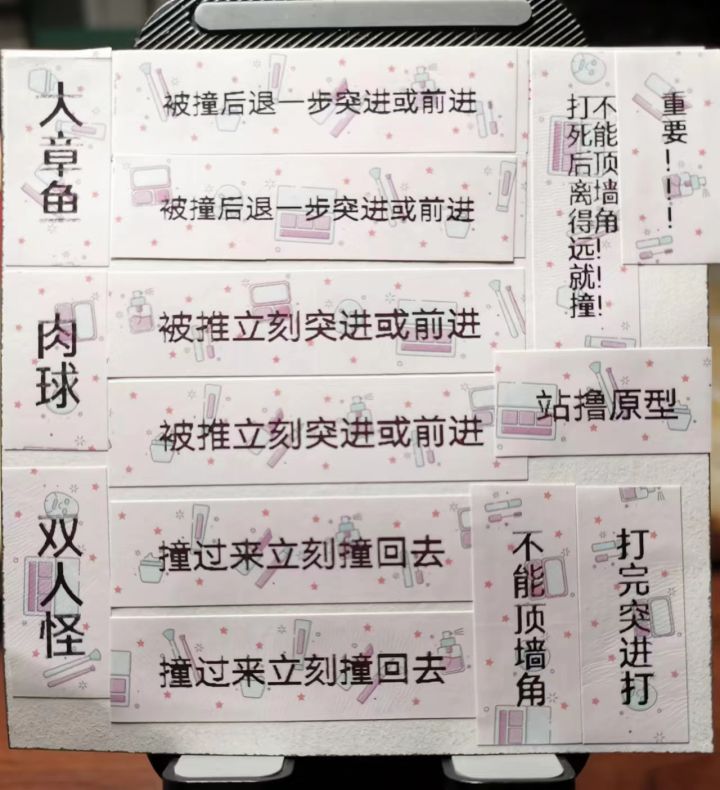 人章鱼
被撞后退一步突进或前进
被撞后退一步突进或前进
不能顶墙角!
打死后离得远就撞!
重要!!!
肉球
被推立刻突进或前进
被推立刻突进或前进
站撸原型
双人怪
撞过来立刻撞回去
撞过来立刻撞回去
不能顶墙角
打完突进打